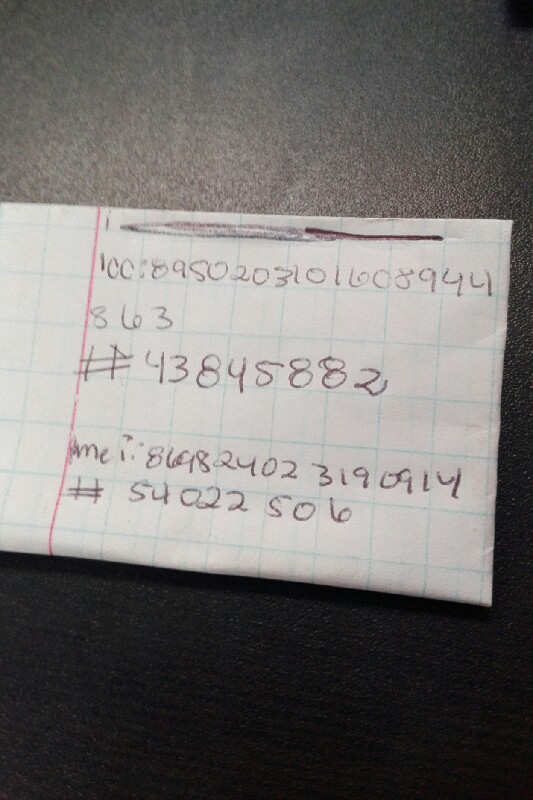 ICC:8950203101608944
863
# 43845882
imei: 869824023190914
# 54022506